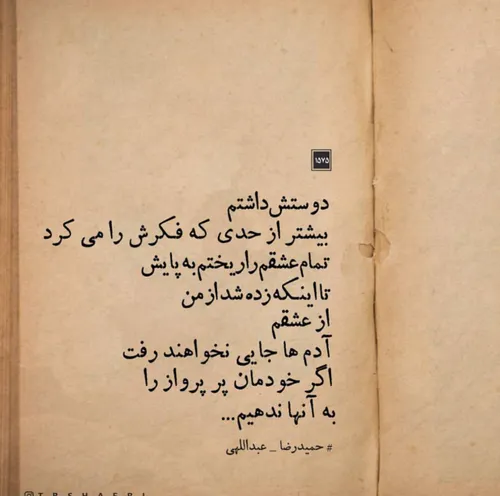 ۱۵۷۵
دوستش داشتم
بیشتر از حدی که فکرش را می کرد
تمام عشقم را ریختم به پایش
تا اینکه زده شد از من
از عشقم
آدم ها جایی نخواهند رفت
اگر خودمان پر پرواز را
به آنها ندهیم...
# حمیدرضا _ عبداللهی